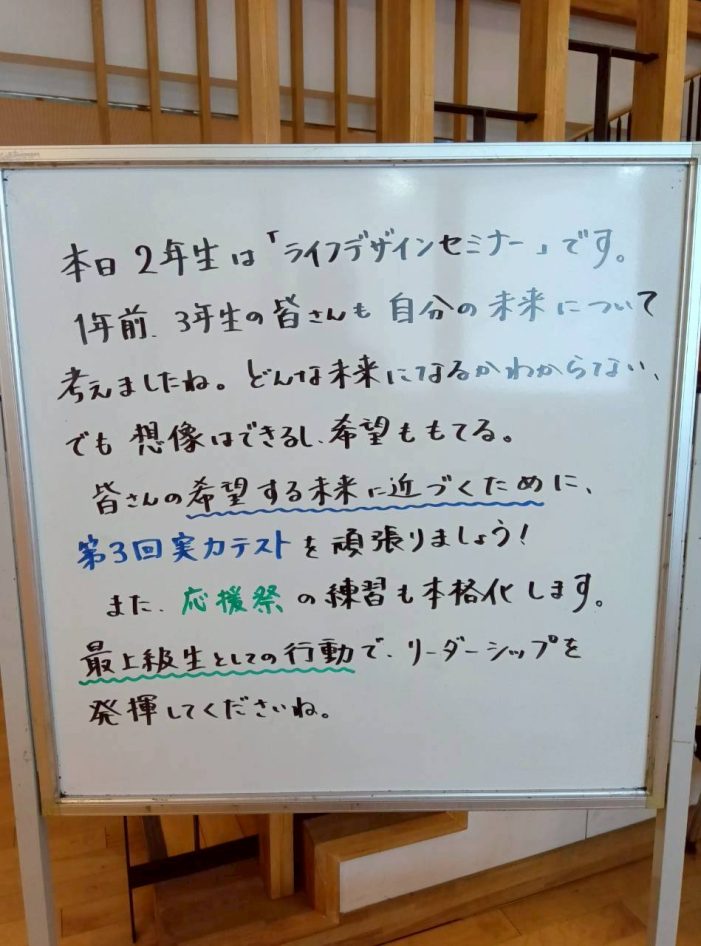 本日2年生は「ライフデザインセミナー」です。
1年前、3年生の皆さんも自分の未来について
考えましたね。どんな未来になるかわからない、
でも想像はできるし、希望ももてる。
皆さんの希望する未来に近づくために、
第3回実力テストを頑張りましょう!
また、応援祭の練習も本格化します。
最上級生としての行動で、リーダーシップを
発揮してくださいね。